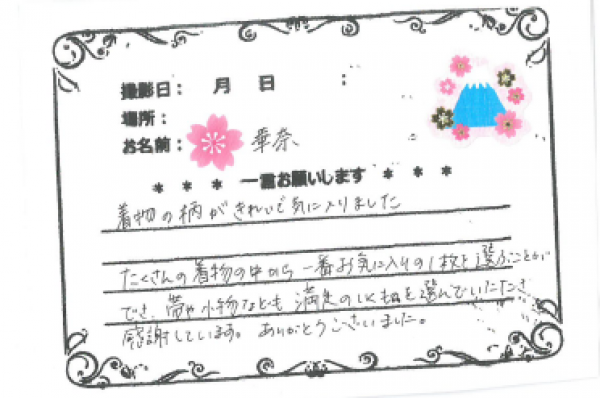 撮影日： 月 日 ：
場所：
お名前： 華奈
＊ ＊ ＊ 一言お願いします ＊ ＊ ＊
着物の柄がきれいで気に入りました
たくさんの着物の中から一番お気に入りの1枚を選ぶことが
でき、帯や小物なども満足のいく物を選んでいただき
感謝しています。ありがとうございました。